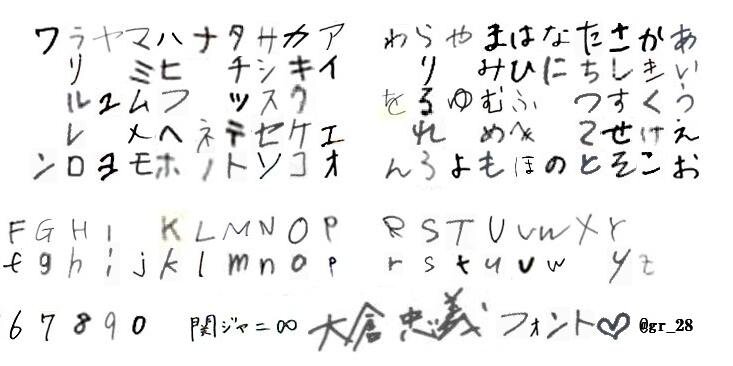 ワラヤマハナタサカア わらやまはなたさかあ
リ ミヒ チシキイ り みひにちしきい
ルユムフ ツスク をるゆむふ つすくう
レ メヘネテセケエ れ めへ てせけえ
ンロヨモホノトソコオ んろよもほのとそこお
F G H I K L M N O P R S T U V W X Y
f g h i j k l m n o p r s t u v w y z
6 7 8 9 0 関ジャニ∞ 大倉忠義 フォント♡ @gr_28